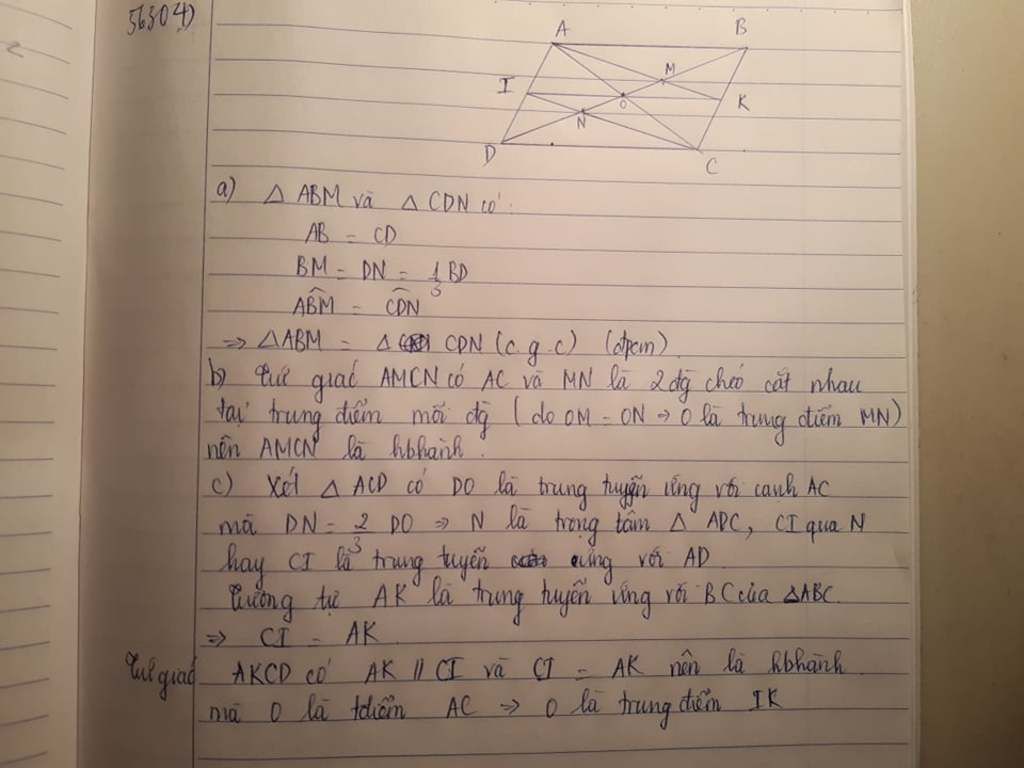 56304)
A B
I M
O K
N
D C
a) △ ABM và △ CDN có:
AB = CD
BM = DN = 1/3 BD
ABM̂ = CDN̂
=> △ABM = △ CDN (c.g.c) (đpcm)
b) Tứ giác AMCN có AC và MN là 2 đg chéo cắt nhau
tại trung điểm mỗi đg (do OM = ON => O là trung điểm MN)
nên AMCN là hbhành.
c) Xét △ ACD có DO là trung tuyến ứng với cạnh AC
mà DN = 2/3 DO => N là trọng tâm △ ADC, CI qua N
hay CI là trung tuyến ứng với AD
Tương tự AK là trung tuyến ứng với BC của △ABC.
=> CI = AK
Tứ giác AKCD có AK // CI và CI = AK nên là hbhành
mà O là tđiểm AC => O là trung điểm IK